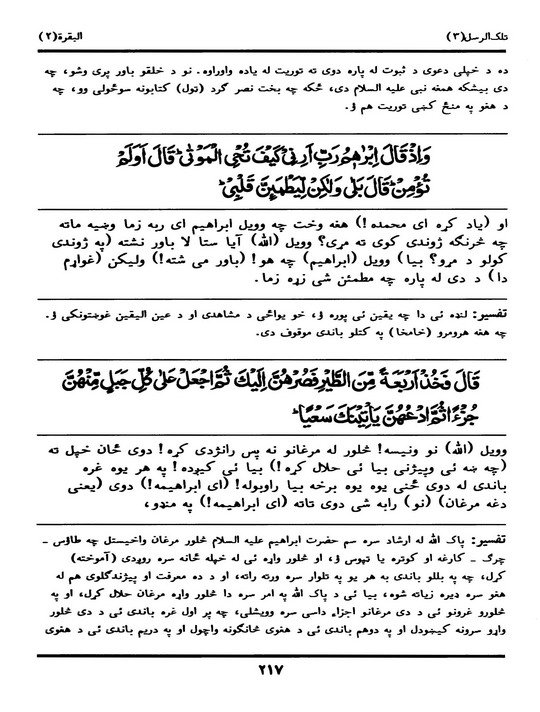 تلک الرسل(۳) البقرة(۲)
ده د خپلی دعوی د ثبوت له پاره دوی ته توریت له یاده واوراوه. نو د خلقو باور پری وشو، چه
دی بیشکه همغه نبی علیه السلام دی، ځکه چه بخت نصر گرد (تول) کتابونه سوځولی وو، چه
د هغو په منځ کښی توریت هم ؤ.
وَاِذْ قَالَ اِبْرٰهٖمُ رَبِّ اَرِنِیْ کَیْفَ تُحْیِ الْمَوْتٰی ؕ قَالَ اَوَلَمْ
تُؤْمِنْ ؕ قَالَ بَلٰی وَلٰکِنْ لِّیَطْمَئِنَّ قَلْبِیْ ؕ
او (یاد کړه ای محمده!) هغه وخت چه وویل ابراهیم ای ربه زما وښیه ماته
چه څرنگه ژوندی کوی ته مړی؟ وویل (الله) آیا ستا لا باور نشته (په ژوندی
کولو د مړو؟ بیا) وویل (ابراهیم) چه هو! (باور می شته!) ولیکن (غواړم
دا) د دی له پاره چه مطمئن شی زړه زما.
تفسیر: لنده ئی دا چه یقین ئی پوره ؤ، خو یواځی د مشاهدی او د عین الیقین غوښتونکی ؤ.
چه هغه هرومرو (خامخا) په کتلو باندی موقوف دی.
قَالَ فَخُذْ اَرْبَعَةً مِّنَ الطَّیْرِ فَصُرْهُنَّ اِلَیْكَ ثُمَّ اجْعَلْ عَلٰی کُلِّ جَبَلٍ مِّنْهُنَّ
جُزْءًا ثُمَّ ادْعُهُنَّ یَاْتِیْنَكَ سَعْیًا ؕ
وویل (الله) نو ونیسه! څلور له مرغانو نه پس رانژدی کړه! دوی ځان خپل ته
(چه ښه ئی وپیژنی بیا ئی حلال کړه!) بیا ئی کیږده! په هر یوه غره
باندی له دوی ځنی یوه یوه برخه بیا راوبوله! (ای ابراهیمه!) دوی (یعنی
دغه مرغان) (نو) رابه شی دوی تاته (ای ابراهیمه!) په منډو،
تفسیر: پاک الله له ارشاد سره سم حضرت ابراهیم علیه السلام څلور مرغان واخیستل چه طاؤس ـ
چرگ ـ کارغه او کوتره یا تپوس ؤ، او څلور واړه ئی له خپله ځانه سره روږدی (آموخته)
کړل، چه په بللو باندی به هر یو په تلوار سره ورته راته، او د ده معرفت او پیژندگلوی هم له
هغو سره ډیره زیاته شوه، بیا ئی د پاک الله په امر سره دا څلور واړه مرغان حلال کړل، او په
څلورو غرونو ئی د دی مرغانو اجزاء داسی سره وویشلی، چه پر اول غره باندی ئی د دی څلور
واړو سرونه کیښودل او په دوهم باندی ئی د هغوی څانگونه واچول او په دریم باندی ئی د هغوی
۲۱۷